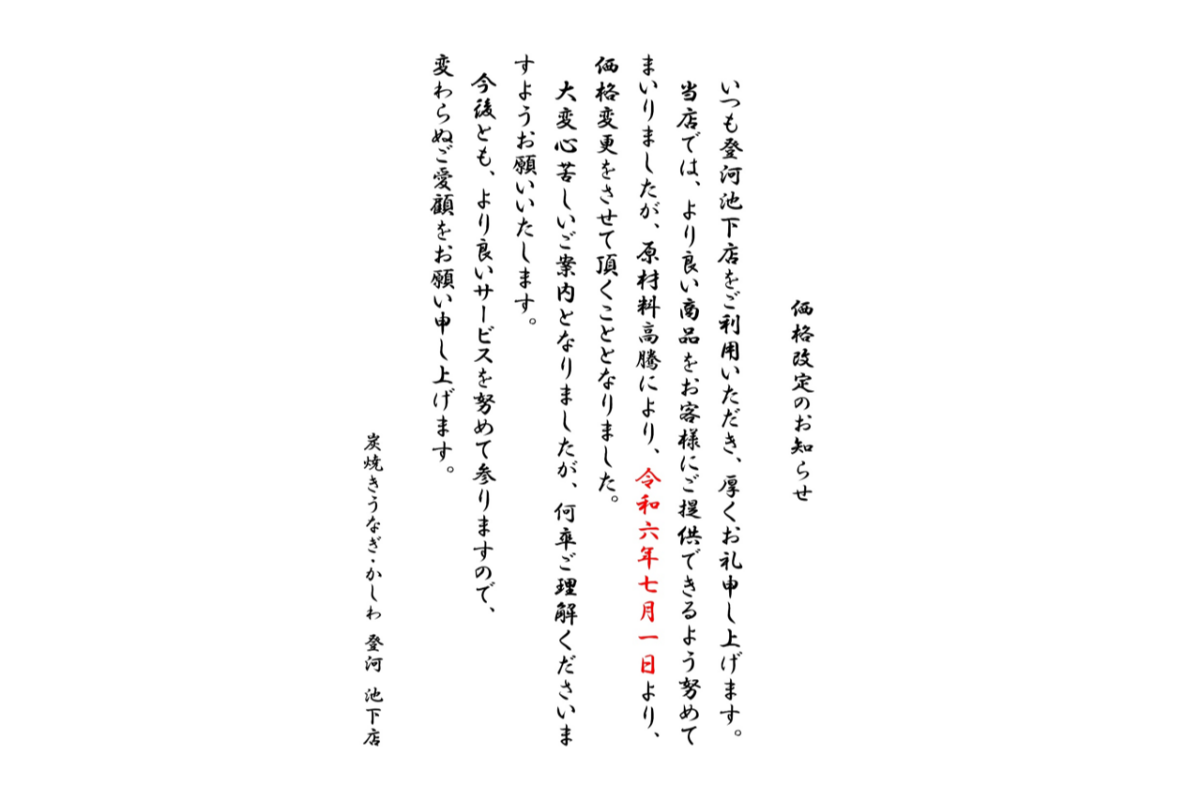 価格改定のお知らせ
いつも登河池下店をご利用いただき、厚くお礼申し上げます。
当店では、より良い商品をお客様にご提供できるよう努めて
まいりましたが、原材料高騰により、令和六年七月一日より、
価格変更をさせて頂くこととなりました。
大変心苦しいご案内となりましたが、何卒ご理解くださいま
すようお願いいたします。
今後とも、より良いサービスを努めて参りますので、
変わらぬご愛顧をお願い申し上げます。
炭焼きうなぎ・かしわ 登河 池下店